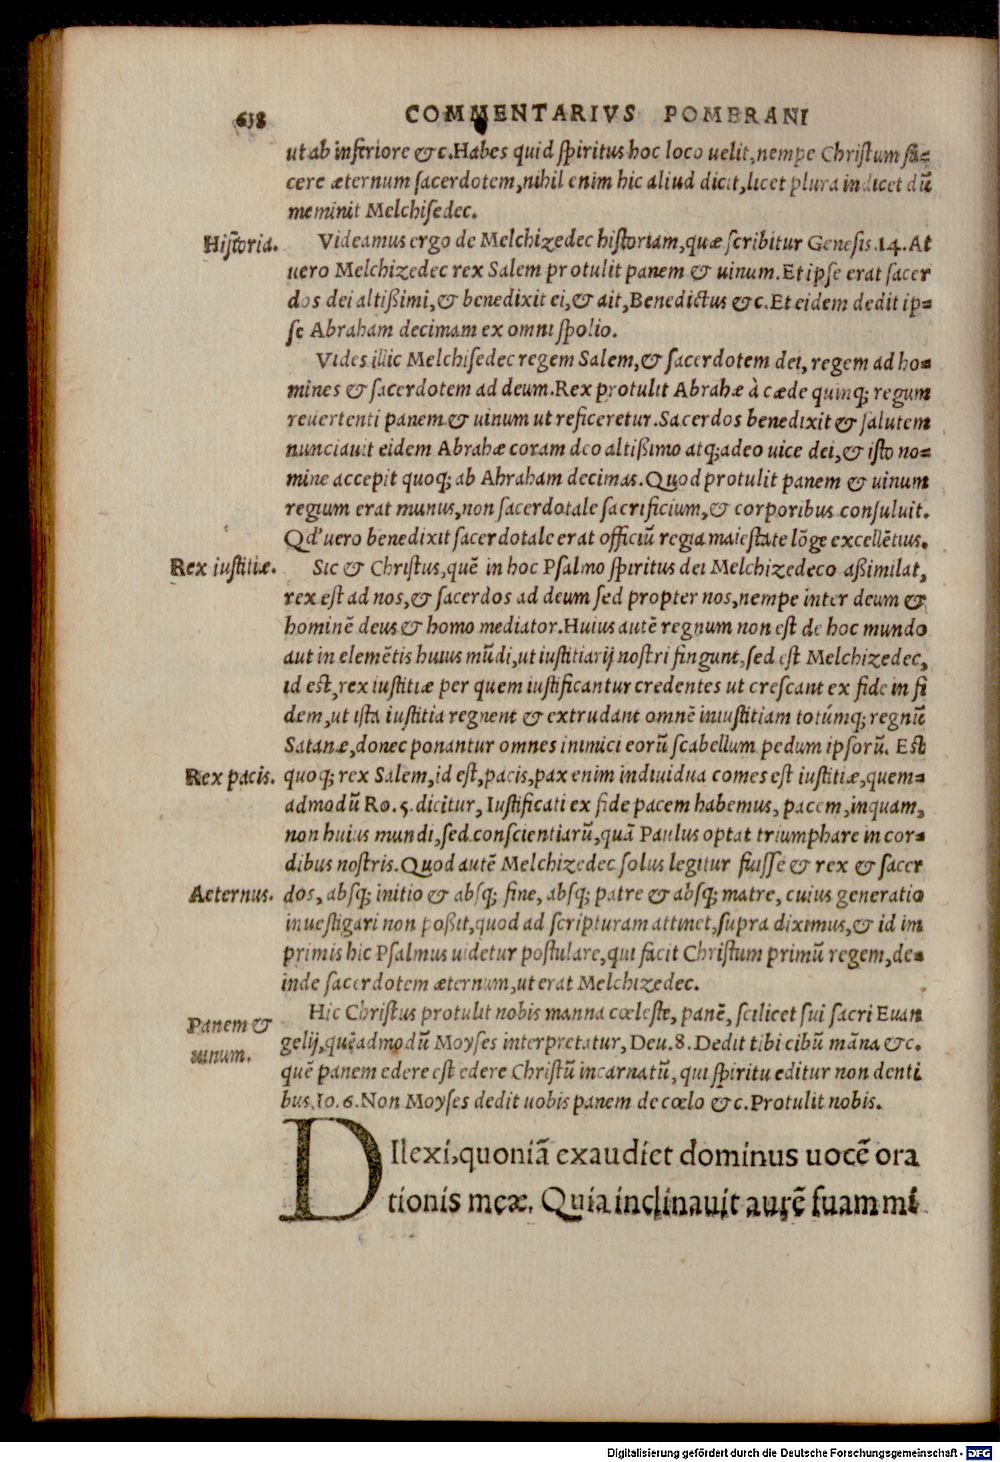 638 COMMENTARIVS POMERANI
ut ab inferiore &c. Habes quid spiritus hoc loco uelit, nempe Christum fa=
cere æternum sacerdotem, nihil enim hic aliud dicit, licet plura indicet dū
meminit Melchisedec.
Historia. Videamus ergo de Melchizedec historiam, quæ scribitur Genesis .14. At
uero Melchizedec rex Salem protulit panem & uinum. Et ipse erat sacer
dos dei altißimi, & benedixit ei, & ait, Benedictus &c. Et eidem dedit ip=
se Abraham decimam ex omni spolio.
Vides illic Melchisedec regem Salem, & sacerdotem dei, regem ad ho=
mines & sacerdotem ad deum. Rex protulit Abrahæ à cæde quinq; regum
reuertenti panem & uinum ut reficeretur. Sacerdos benedixit & salutem
nunciauit eidem Abrahæ coram deo altißimo atq; adeo uice dei, & isto no=
mine accepit quoq; ab Abraham decimas. Quod protulit panem & uinum
regium erat munus, non sacerdotale sacrificium, & corporibus consuluit.
Qd' uero benedixit sacerdotale erat officiū regia maiestate lōge excellētius.
Rex iustitiæ. Sic & Christus, quē in hoc Psalmo spiritus dei Melchizedeco aßimilat,
rex est ad nos, & sacerdos ad deum sed propter nos, nempe inter deum &
hominē deus & homo mediator. Huius autē regnum non est de hoc mundo
aut in elemētis huius mūdi, ut iustitiarij nostri fingunt, sed est Melchizedec,
id est, rex iustitiæ per quem iustificantur credentes ut crescant ex fide in fi
dem, ut ista iustitia regnent & extrudant omnē iniustitiam totúmq; regnū
Satanæ, donec ponantur omnes inimici eorū scabellum pedum ipsorū. Est
Rex pacis. quoq; rex Salem, id est, pacis, pax enim indiuidua comes est iustitiæ, quem=
admodū Ro. 5. dicitur, Iustificati ex fide pacem habemus, pacem, inquam,
non huius mundi, sed conscientiarū, quā Paulus optat triumphare in cor=
dibus nostris. Quod autē Melchizedec solus legitur fuisse & rex & sacer
Aeternus. dos, absq; initio & absq; fine, absq; patre & absq; matre, cuius generatio
inuestigari non poßit, quod ad scripturam attinet, supra diximus, & id im
primis hic Psalmus uidetur postulare, qui facit Christum primū regem, de=
inde sacerdotem æternum, ut erat Melchizedec.
Panem & Hic Christus protulit nobis manna cœleste, panē, scilicet sui sacri Euan
uinum. gelij, quēadmodū Moyses interpretatur, Deu. 8. Dedit tibi cibū māna &c.
quē panem edere est edere Christū incarnatū, qui spiritu editur non denti
bus, Io. 6. Non Moyses dedit uobis panem de cœlo &c. Protulit nobis.
DIlexi, quoniā exaudiet dominus uocē ora
tionis meæ. Quia inclinauit aurē suam mi
Digitalisierung gefördert durch die Deutsche Forschungsgemeinschaft - DFG